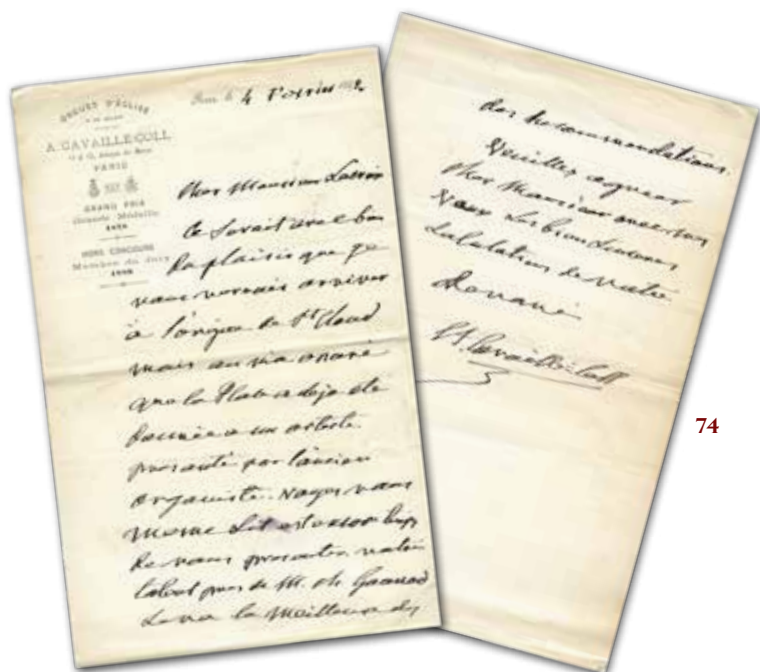 ORGUES D'ÉGLISE
A. CAVAILLÉ-COLL
PARIS
GRAND PRIX
Grande Médaille
HORS CONCOURS
Membre du Jury
4
Cher Monsieur
Ce serait avec bien
du plaisir que je
vous verrais arriver
à l'orgue de St Cloud
mais on m'a
que la Place a déjà été
donnée à un artiste
présenté par l'ancien
organiste. Voyez vous
même
de vous présenter, votre
de M. Ch. Gounod
sera la meilleure des
des Recommandations.
Veuillez agréer
Cher Monsieur avec
vœux les bien sincères
Salutations de votre
Dévoué
A. Cavaillé-Coll
74